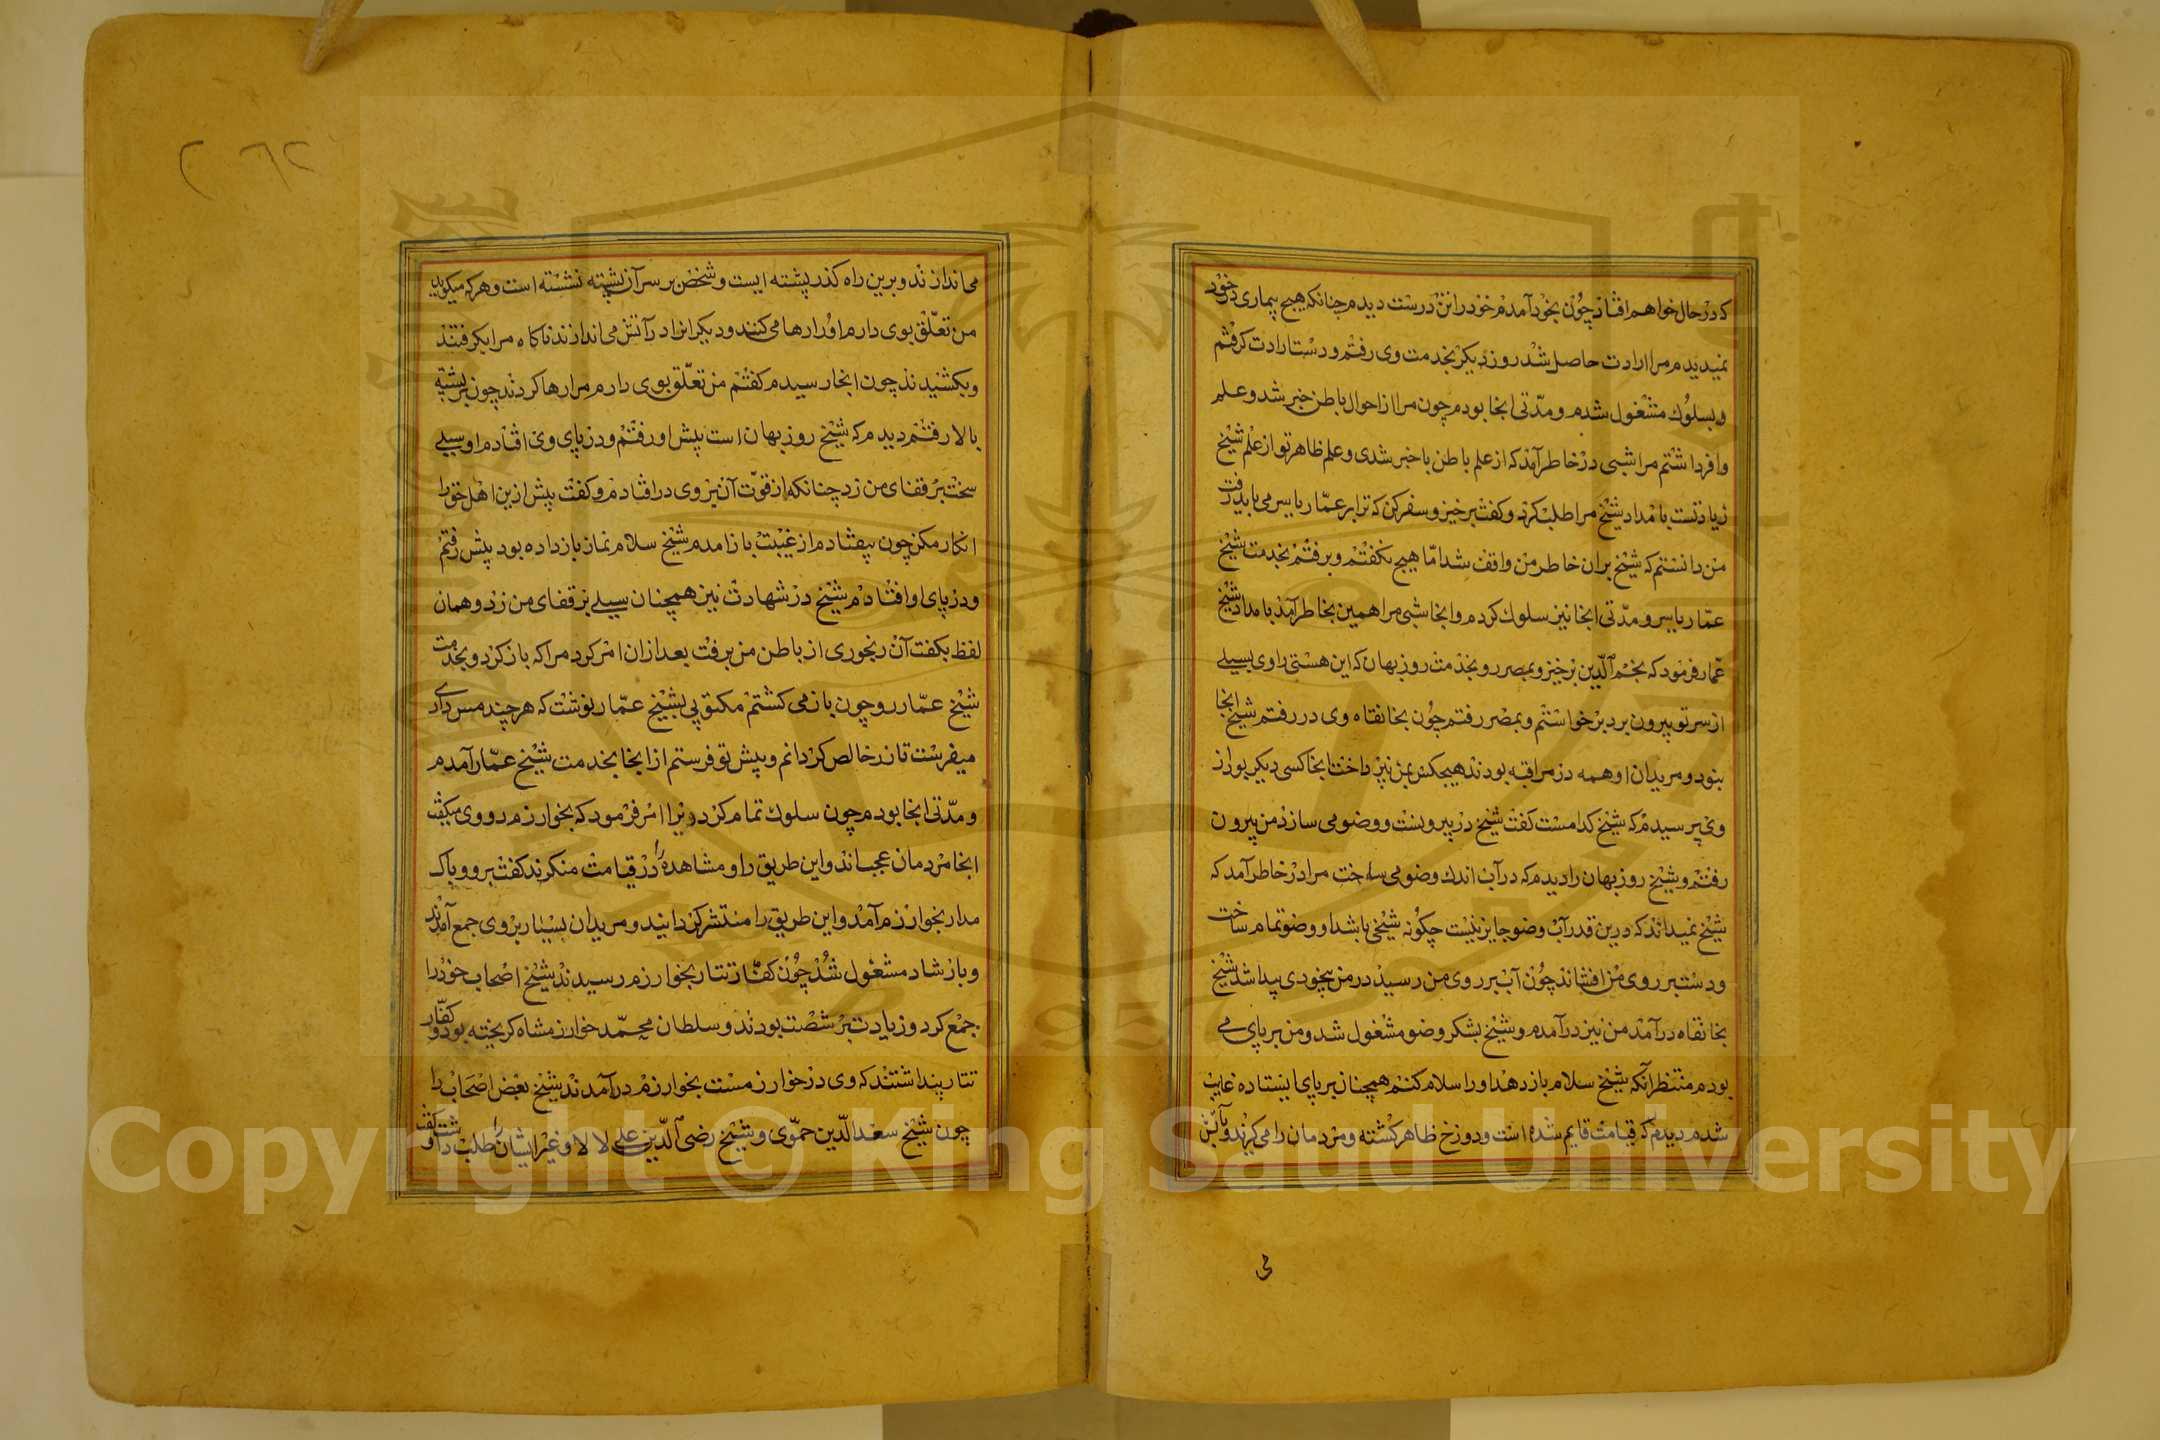 که در حال خواهم افتاد چون بخود آمدم خود را تن درست دیدم چنانکه هیچ بیماری در خود
نمیدیدم مرا ارادت حاصل شد روز دیگر بخدمت وی رفتم و دست ارادت گرفتم
و بسلوک مشغول شدم و مدّتی آنجا بودم چون مرا از احوال باطن خبر شد و علم
وافر داشتم مرا شبی در خاطر آمد که از علم باطن با خبر شدی و علم ظاهر تو از علم شیخ
زیادتست بامداد شیخ مرا طلب کرد و کفت برخیز و سفر کن که ترا بر عمّار یاسر می باید رفت
من دانستم که شیخ بران خاطر من واقف شد امّا هیچ نکفتم و برفتم بخدمت شیخ
عمّار یاسر و مدّتی آنجا نیز سلوک کردم و آنجا شبی مرا همین بخاطر آمد بامداد شیخ
عمّار فرمود که نجم الدّین برخیز و بمصر رو بخدمت روزبهان که این هستی را وی بسیلی
از سر تو بیرون برد برخواستم و بمصر رفتم چون بخانقاه وی در رفتم شیخ آنجا
نبود و مریدان او همه در مراقبه بودند هیچکس بمن نپرداخت آنجا کسی دیکر بود از
وی پرسیدم که شیخ کدامست کفت شیخ در بیرونست و وضو می سازد من بیرون
رفتم و شیخ روزبهان را دیدم که در آب اندک وضو می ساخت مرا در خاطر آمد که
شیخ نمیداند که درین قدر آب وضو جایز نیست چکونه شیخی باشد او وضو تمام ساخت
و دست بر روی من افشاند چون آب بر روی من رسید در من بیخودی پیدا شد شیخ
بخانقاه درآمد من نیز درآمدم و شیخ بشکر وضو مشغول شد و من بر پای می
بودم منتظر آنکه شیخ سلام باز دهد او را سلام کنم همچنان بر پای ایستاده غایب
شدم دیدم که قیامت قایم شده است و دوزخ ظاهر کشته و مردمان را می کیرند و بآتش
می
می اندازند و برین راه کذر پشته ایست و شخص بر سر آن پشته نشسته است و هر که میکوید
من تعلّق بوی دارم او را رها می کنند و دیکرانرا در آتش می اندازند ناکاه مرا بکرفتند
و بکشیدند چون آنجا رسیدم کفتم من تعلّق بوی دارم مرا رها کردند چون بر پشته
بالا رفتم دیدم که شیخ روزبهان است پیش او رفتم و در پای وی افتادم او سیلی
سخت بر قفای من زد چنانکه از قوّت آن بر وی در افتادم و کفت پیش ازین اهل حق را
انکار مکن چون بیفتادم از غیبت باز آمدم شیخ سلام نماز باز داده بود پیش رفتم
و در پای او افتادم شیخ در شهادت نیز همچنان سیلی بر قفای من زد و همان
لفظ بکفت آن رنجوری از باطن من برفت بعد از ان امر کرد مرا که باز کرد و بخدمت
شیخ عمّار رو چون باز می کشتم مکتوبی بشیخ عمّار نوشت که هر چند مس داری
میفرست تا زر خالص کردانم و پیش تو فرستم از انجا بخدمت شیخ عمّار آمدم
و مدّتی آنجا بودم چون سلوک تمام کرد ویرا امر فرمود که بخوارزم رو وی میکفت
آنجا مردمان عجب اند و این طریق را و مشاهده را در قیامت منکرند کفت برو و باک
مدار بخوارزم آمد و این طریق را منتشر کردانید و مریدان بسیار بر وی جمع آمدند
و بارشاد مشغول شد چون کفّار تتار بخوارزم رسیدند شیخ اصحاب خود را
جمع کرد و زیادت بر شصت بودند و سلطان محمّد خوارزمشاه کریخته بود و کفّار
تتار پنداشتند که وی در خوارزمست بخوارزم درآمدند شیخ بعض اصحاب را
چون شیخ سعد الدّین حمّوی و شیخ رضی الدّین علی لالا و غیر ایشان را طلب داشت و کفت
Copyright © King Saud University